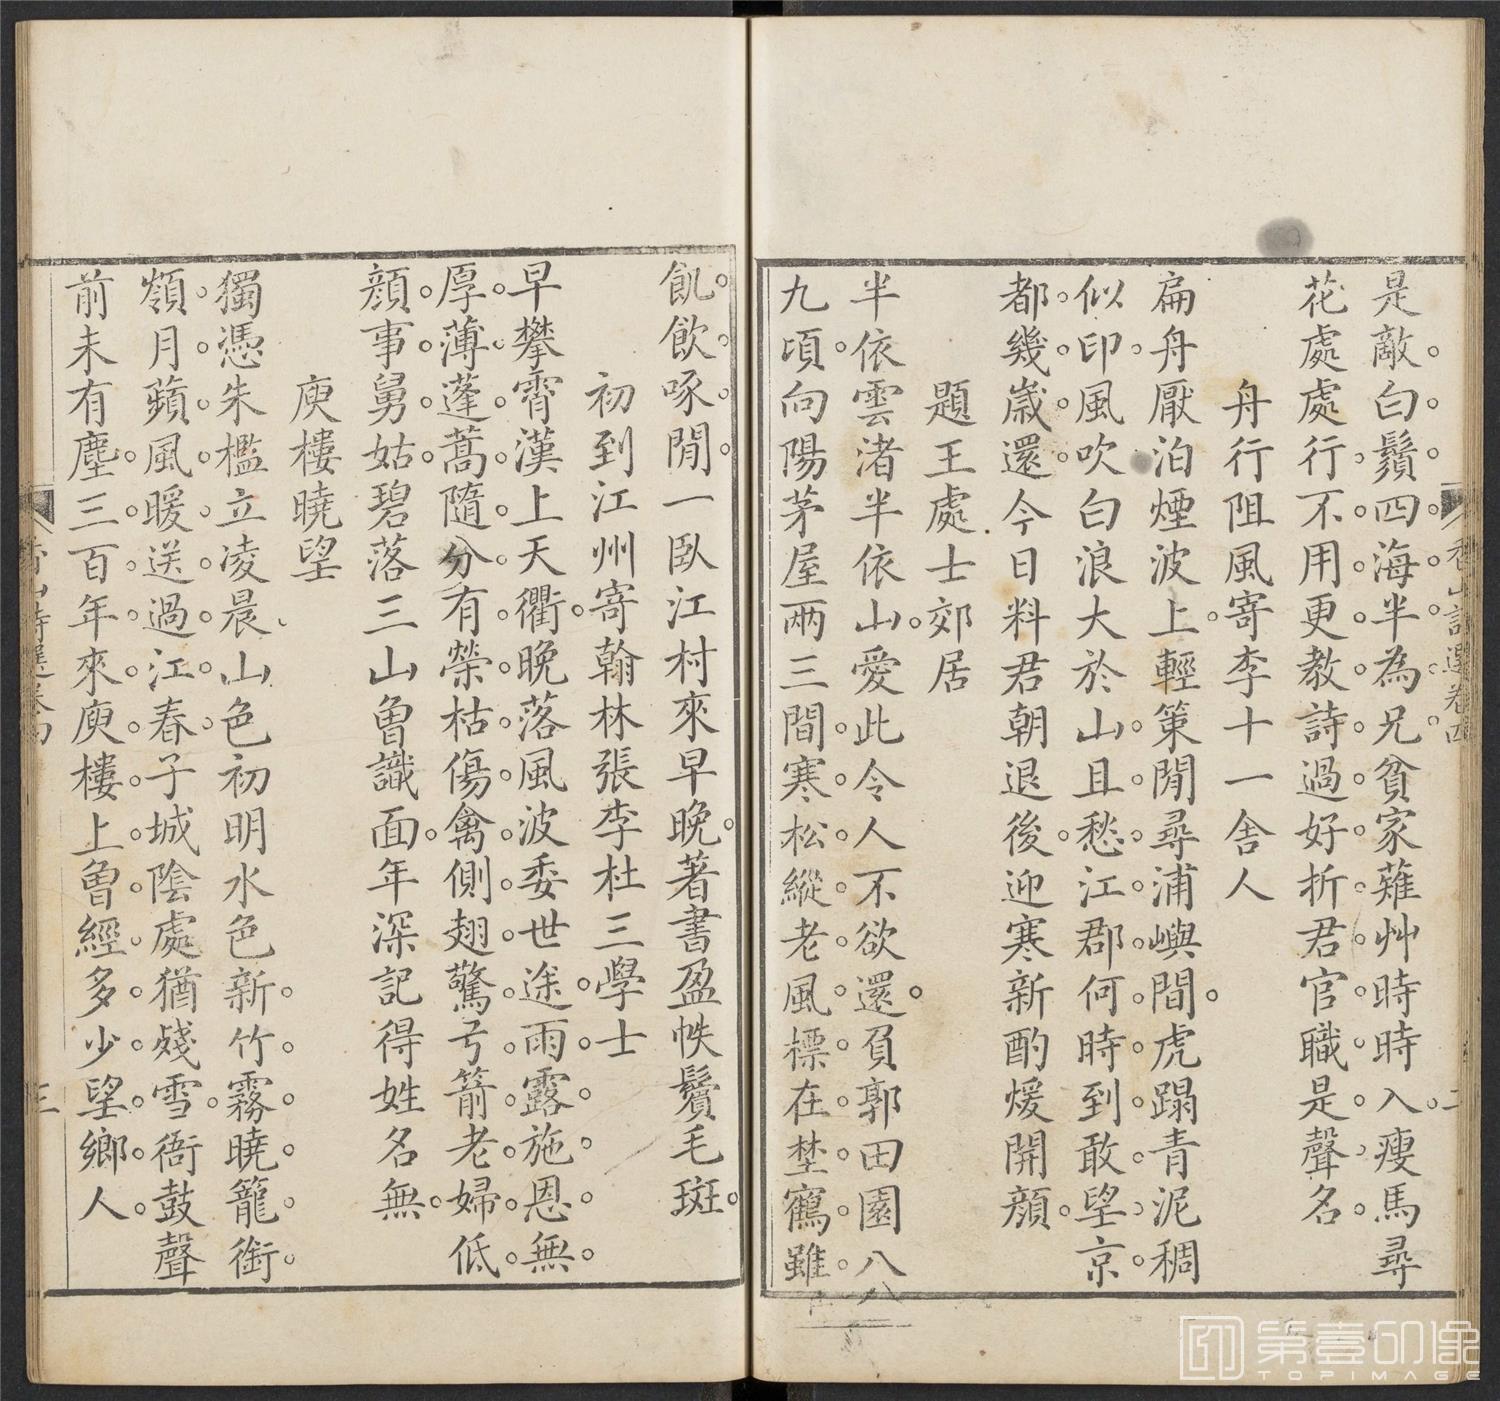 是敵白鬚四海半為兄貧家薙艸時時入瘦馬尋
花處處行不用更教詩過好折君官職是聲名
舟行阻風寄李十一舍人
扁舟厭泊煙波上輕策閒尋浦嶼間虎蹋青泥稠
似印風吹白浪大於山且愁江郡何時到敢望京
都幾歲還今日料君朝退後迎寒新酌煖開顏
題王處士郊居
半依雲渚半依山愛此令人不欲還負郭田園八八
九頃向陽茅屋兩三間寒松縱老風標在埜鶴雖
香山詩選卷四
二
飢飲啄閒一臥江村來早晚著書盈帙鬢毛斑
初到江州寄翰林張李杜三學士
早攀霄漢上天衢晚落風波委世途雨露施恩無
厚薄蓬蒿隨分有榮枯傷禽側翅驚弓箭老婦低
顏事舅姑碧落三山曾識面年深記得姓名無
庾樓曉望
獨憑朱檻立凌晨山色初明水色新竹霧曉籠銜
嶺月蘋風暖送過江春子城陰處猶殘雪衙鼓聲
前未有塵三百年來庾樓上曾經多少望鄉人
香山詩選卷四
三
第壹印像
TOPIMAGE